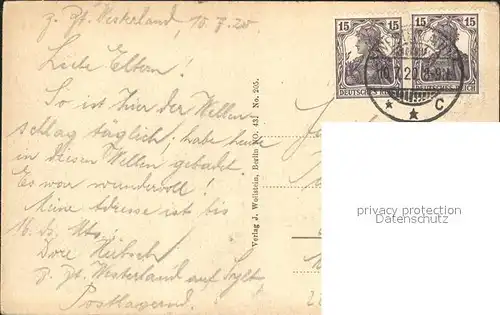 z. Zt. Westerland, 10.7.20
Liebe Eltern!
So ist hier der Wellen
schlag täglich; habe heute
in diesen Wellen gebadet.
Es war wundervoll!
Meine Adresse ist bis
16. ds. Mts.:
Dore
z. Zt. Westerland auf Sylt,
Postlagernd.
Verlag J. Wollstein, Berlin NO. 43. No. 205.
15 15 15 15
DEUTSCHES REICH
10.7.20 8-9
* * C
privacy protection
Datenschutz